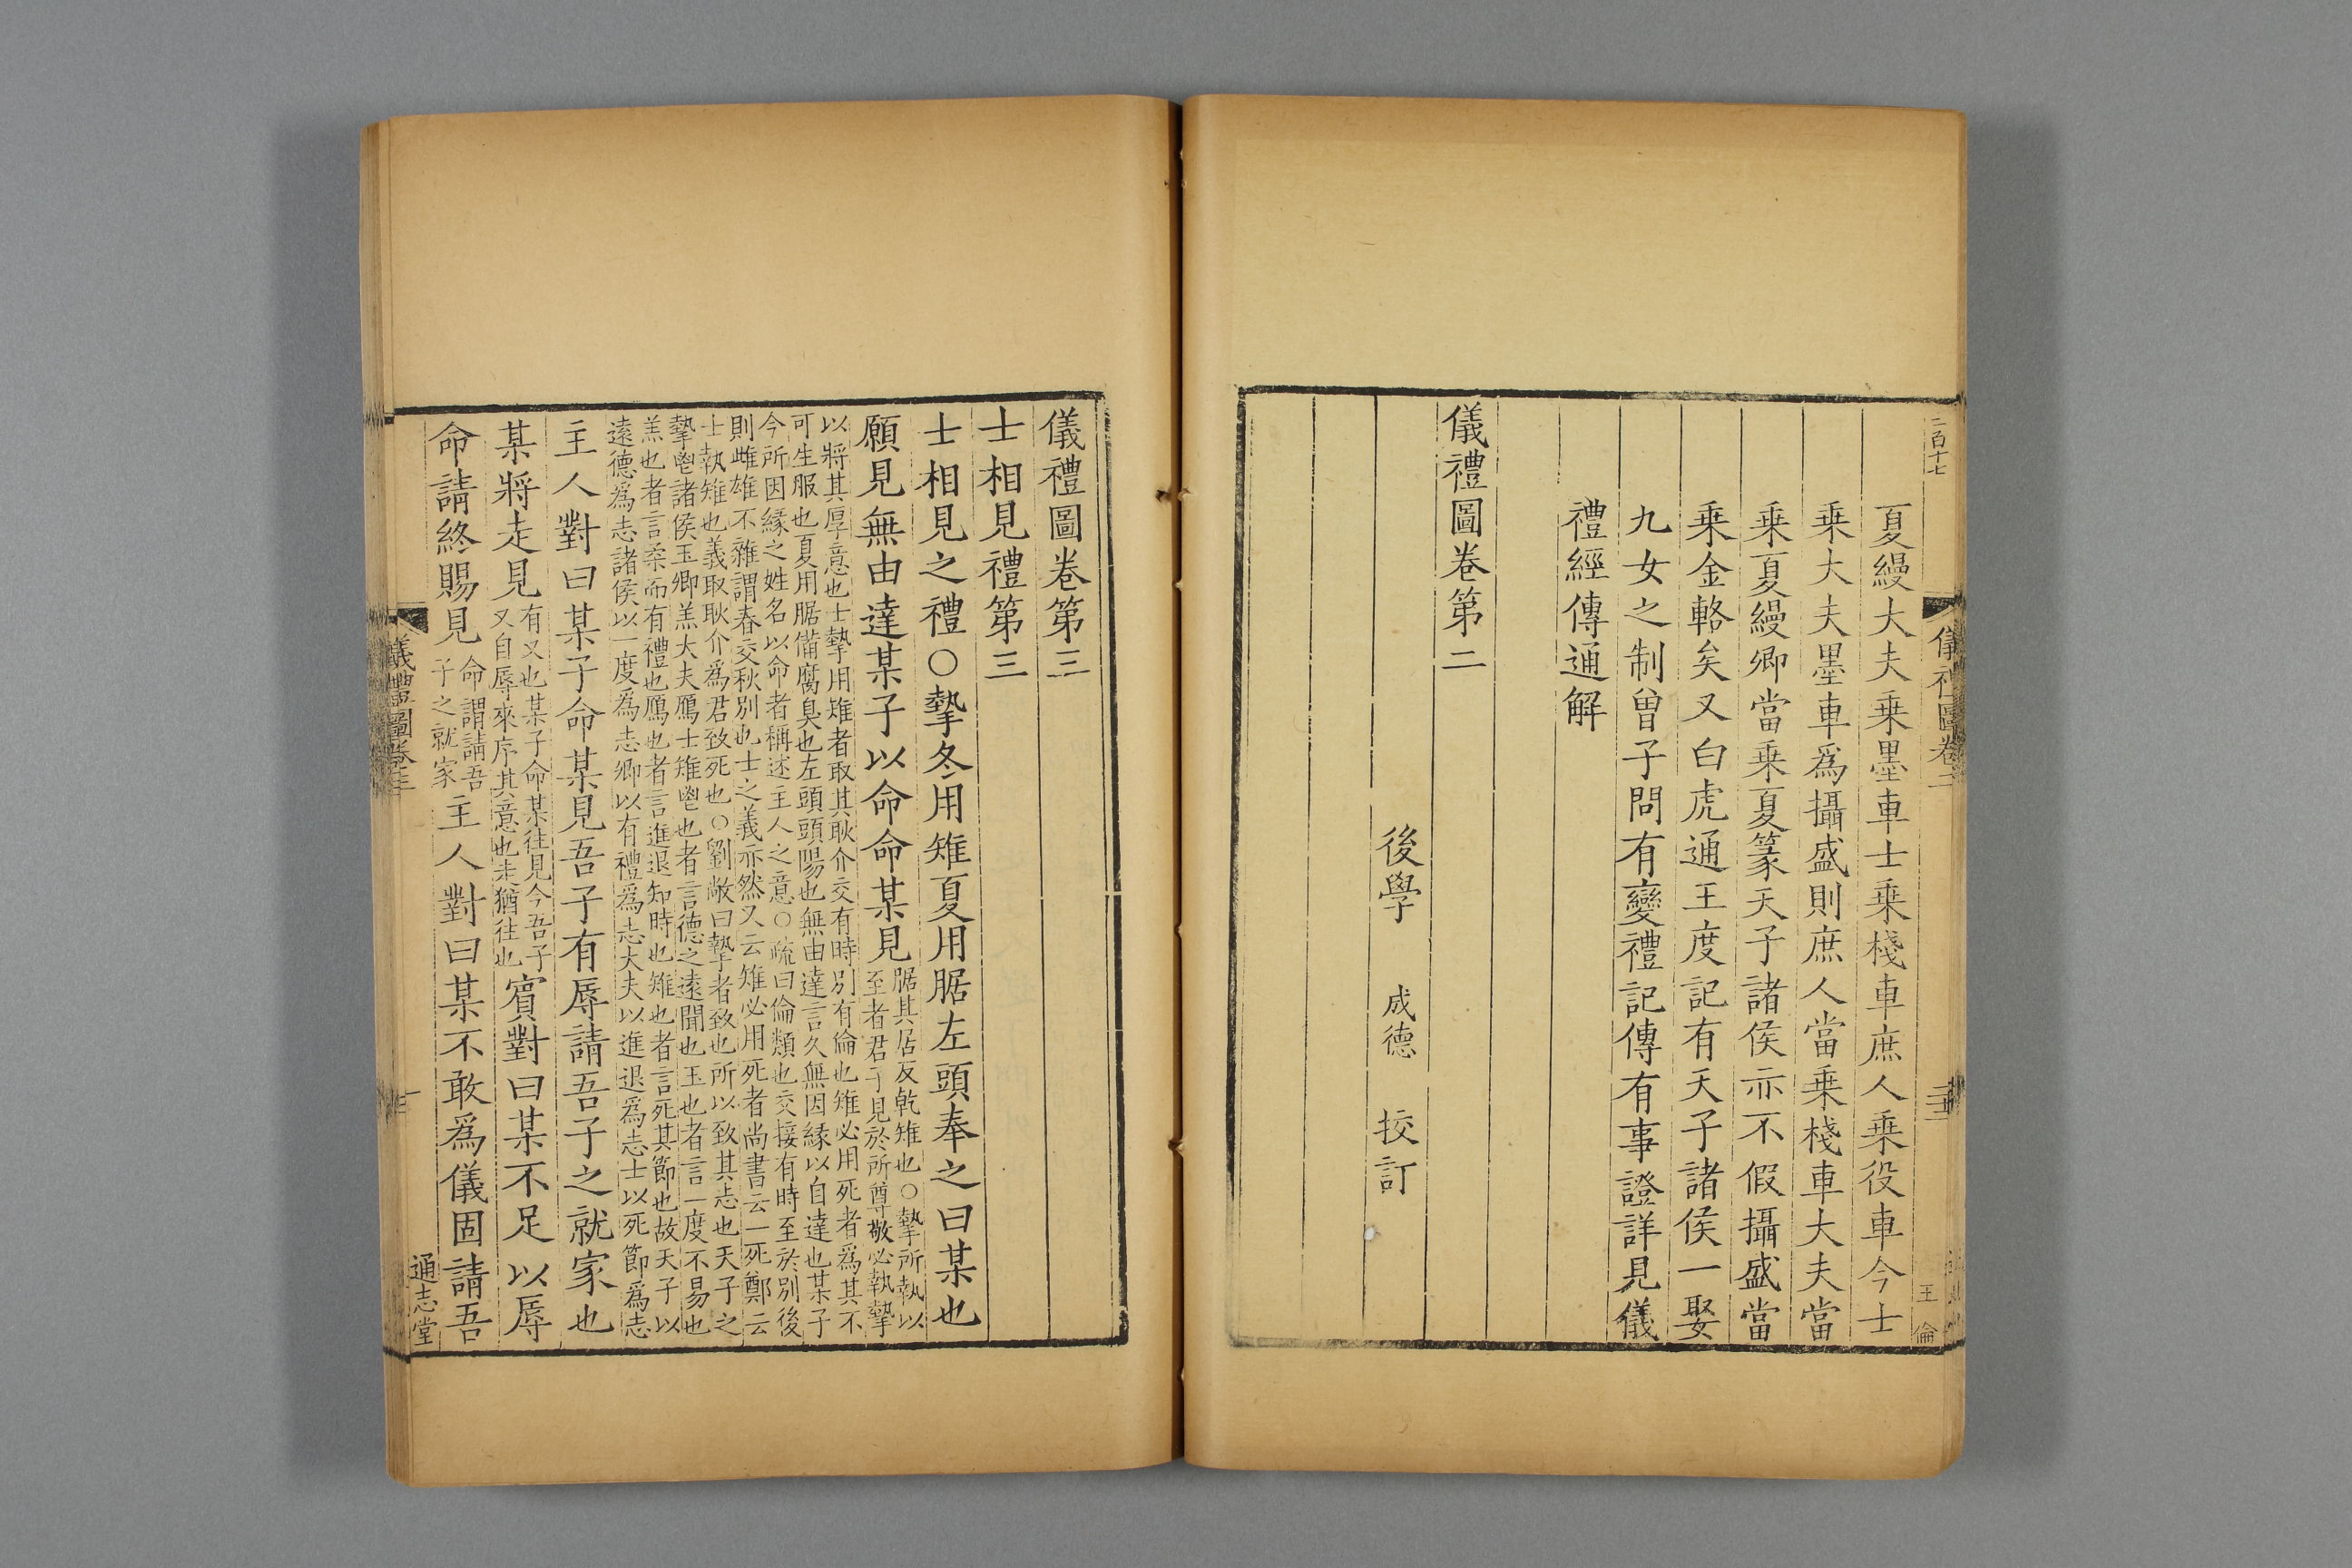 二百十七
儀禮圖卷二
王倫
夏縵大夫乗墨車士乗棧車庶人乗役車今士
乗大夫墨車爲攝盛則庶人當乗棧車大夫當
乗夏縵卿當乗夏篆天子諸侯亦不假攝盛當
乗金輅矣又白虎通王度記有天子諸侯一娶
九女之制曾子問有變禮記傳有事證詳見儀
禮經傳通解
儀禮圖卷第二
後學 成德 挍訂
儀禮圖卷第三
士相見禮第三
士相見之禮○摯冬用雉夏用腒左頭奉之曰某也
願見無由達某子以命命某見
腒其居反乾雉也○摯所執以
至者君子見於所尊敬必執摯
以將其厚意也士摯用雉者取其耿介交有時別有倫也雉必用死者爲其不
可生服也夏用腒備腐臭也左頭頭陽也無由達言久無因縁以自達也某子
今所因縁之姓名以命者稱述主人之意○疏曰倫類也交接有時至於別後
則雌雄不雜謂春交秋別也士之義亦然又云雉必用死者尚書云一死鄭云
士執雉也義取耿介爲君致死也○劉敞曰摯者致也所以致其志也天子之
摯鬯諸侯玉卿羔大夫鴈士雉鬯也者言德之遠聞也玉也者言一度不易也
羔也者言柔而有禮也鴈也者言進退知時也雉也者言死其節也故天子以
遠德爲志諸侯以一度爲志卿以有禮爲志大夫以進退爲志士以死節爲志
主人對曰某子命某見吾子有辱請吾子之就家也
某將走見
有又也某子命某往見今吾子
又自辱來序其意也走猶往也
賔對曰某不足以辱
命請終賜見
命謂請吾
子之就家
主人對曰某不敢爲儀固請吾
儀禮圖卷三
一
通志堂